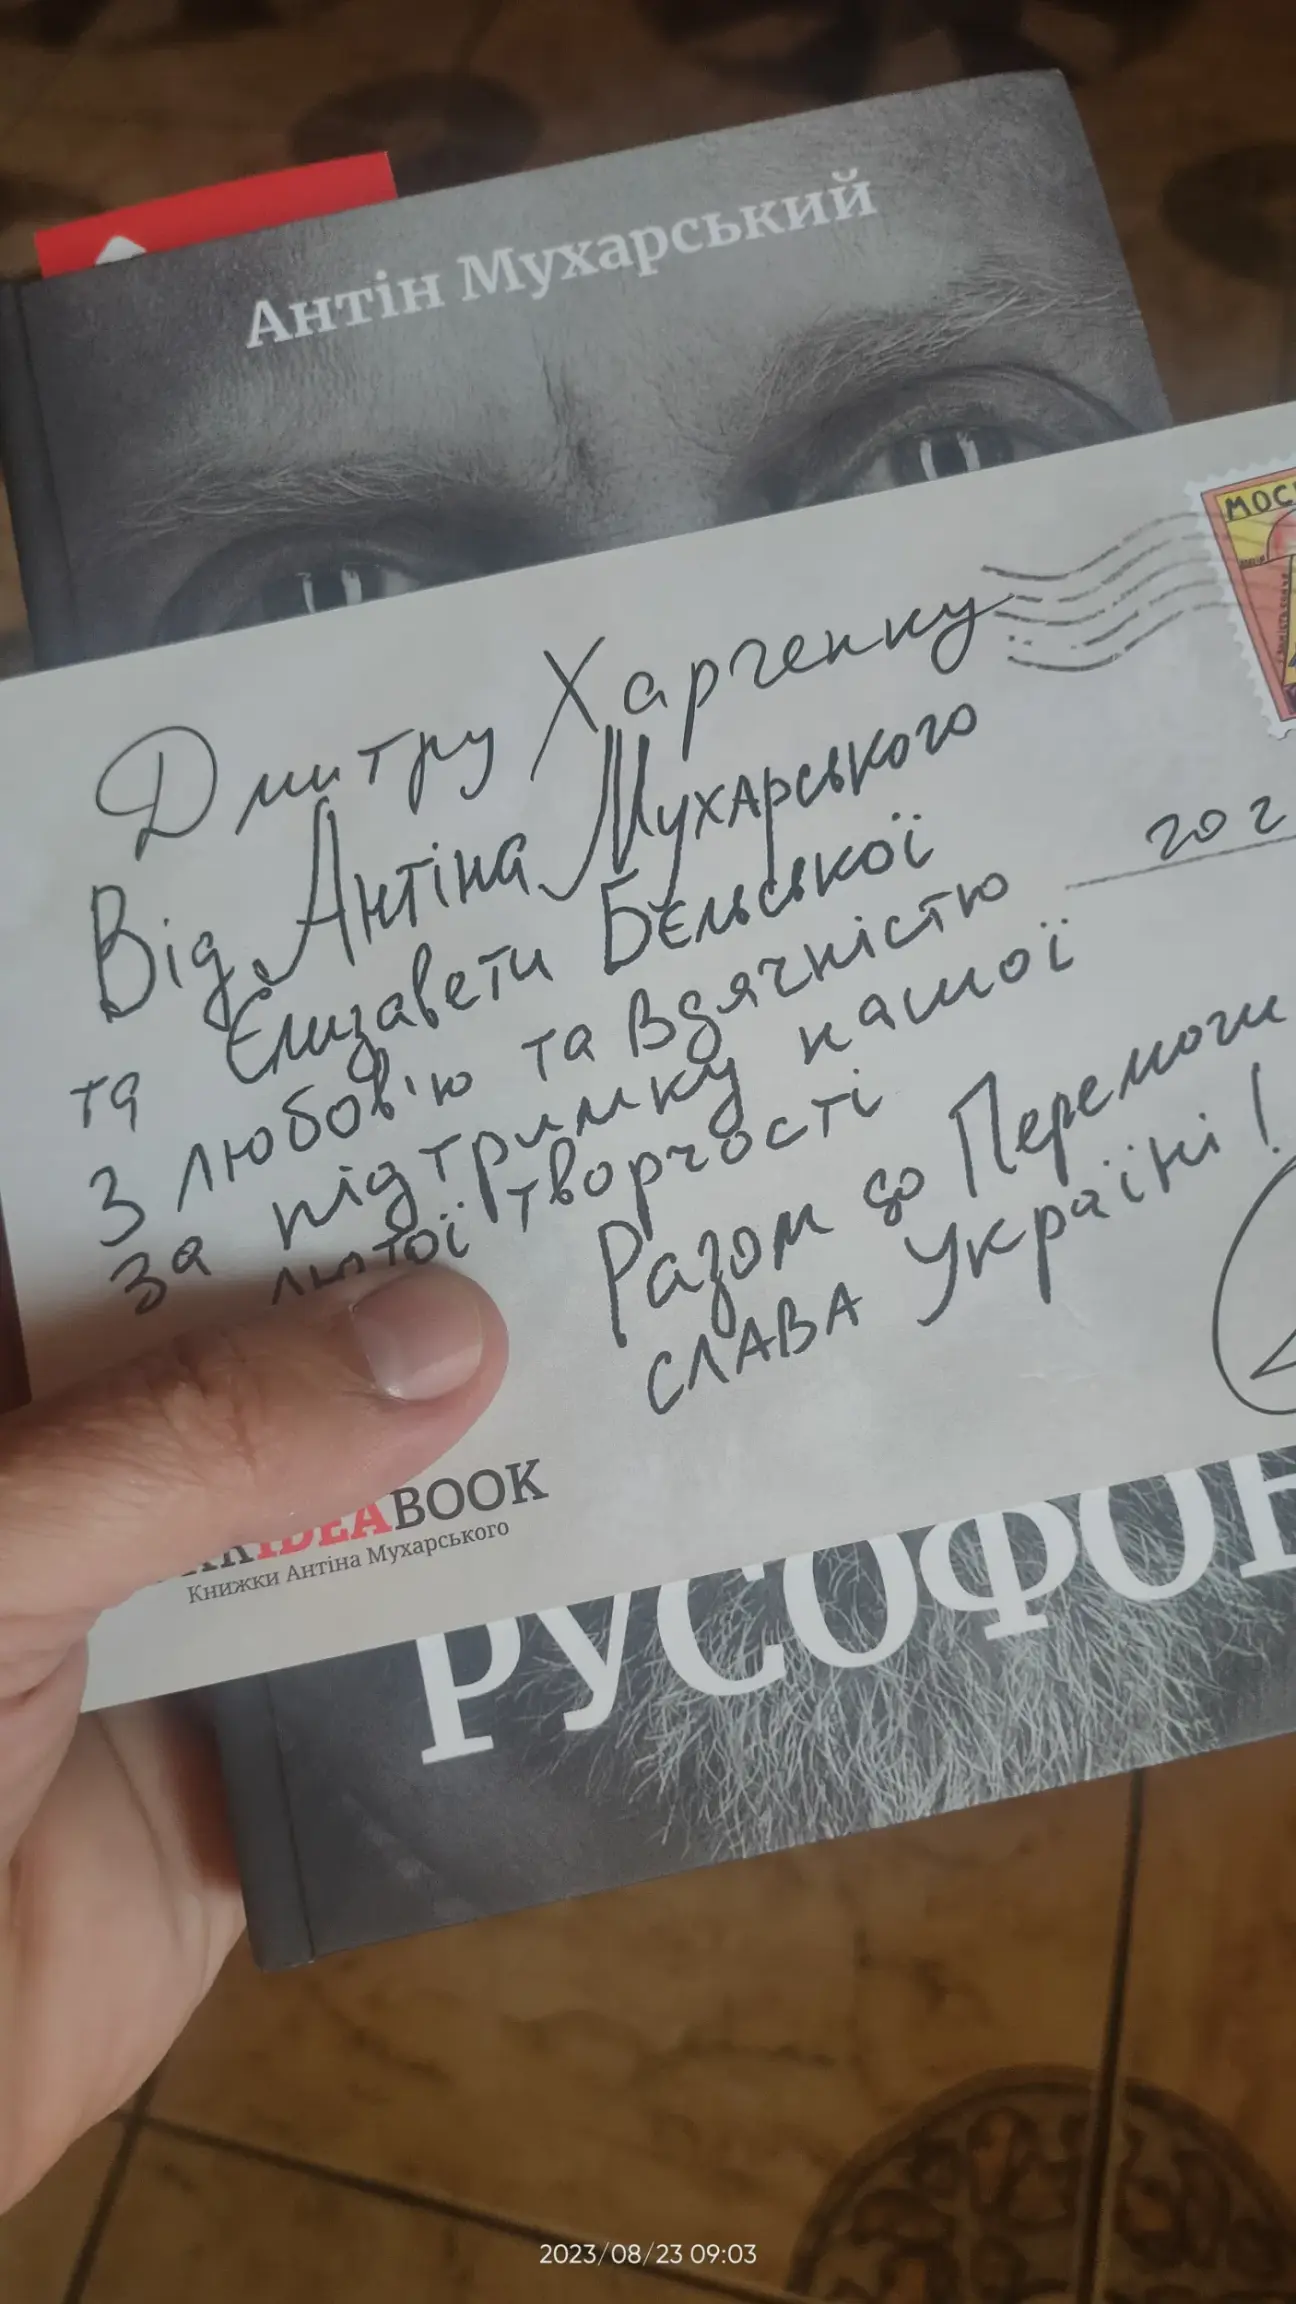 Антін Мухарський
МОС
Дмитру Харченку
Від Антіна Мухарського
та Єлизавети Бєльської
З любов'ю та вдячністю
за підтримку нашої
лютої творчості
Разом до Перемоги
СЛАВА Україні!
IDEABOOK
Книжки Антіна Мухарського
РУСОФОН
2023/08/23 09:03